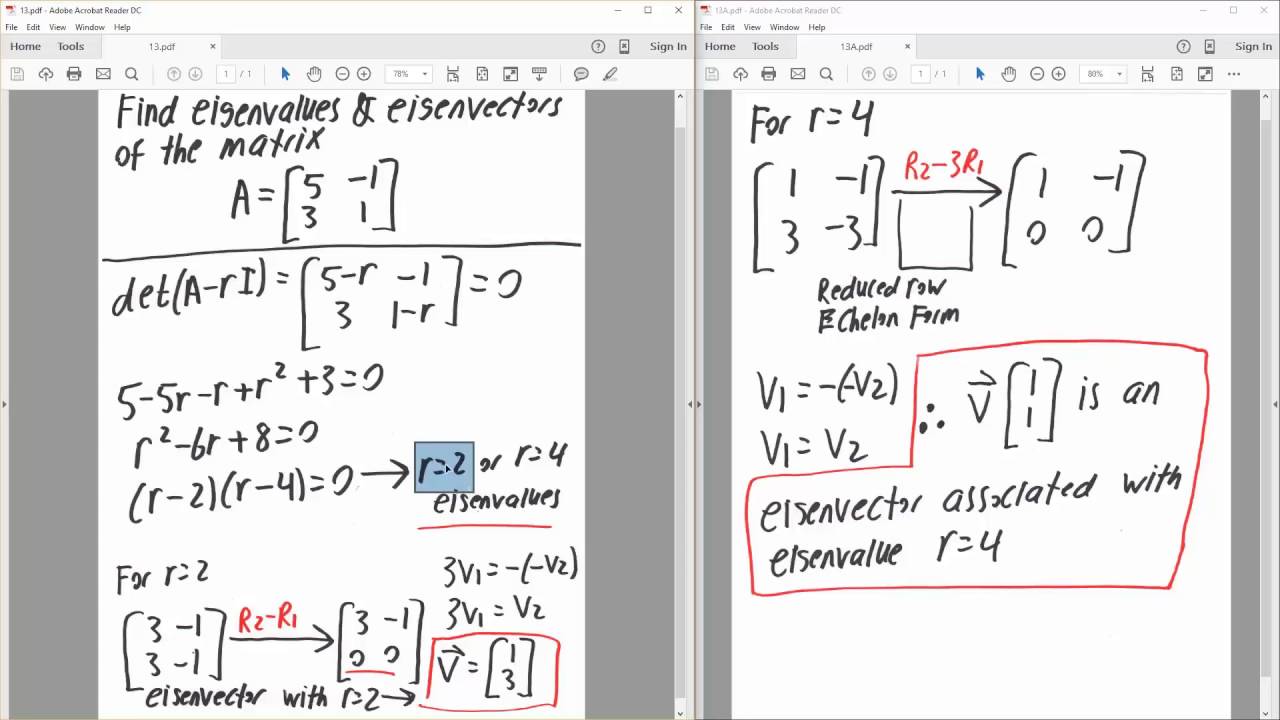 13.pdf - Adobe Acrobat Reader DC
File Edit View Window Help
Home Tools 13.pdf × ? Sign In
1 / 1 78%
Find eigenvalues & eigenvectors
of the matrix
A = [5 -1
3 1]
det(A-rI) = [5-r -1
3 1-r] = 0
5-5r-r+r²+3=0
r²-6r+8=0
(r-2)(r-4)=0 → r=2 or r=4
eigenvalues
For r=2
[3 -1
3 -1]
R2-R1 →
[3 -1
0 0]
3V1=-(-V2)
3V1=V2
V⃗=[1
3]
eigenvector with r=2 →
13A.pdf - Adobe Acrobat Reader DC
File Edit View Window Help
Home Tools 13A.pdf × ? Sign In
1 / 1 80%
For r=4
[1 -1
3 -3]
R2-3R1 →
[1 -1
0 0]
Reduced row
Echelon Form
V1=-(-V2)
V1=V2
∴ V⃗ [1
1] is an
eigenvector associated with
eigenvalue r=4